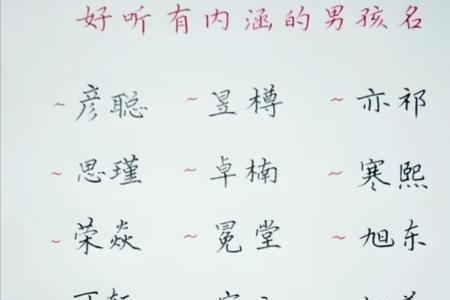 好听有内涵的男孩名
~彦聪 ~昱樽 ~亦祁
~思瑾 ~卓楠 ~寒熙
~荣焱 ~冕堂 ~旭东